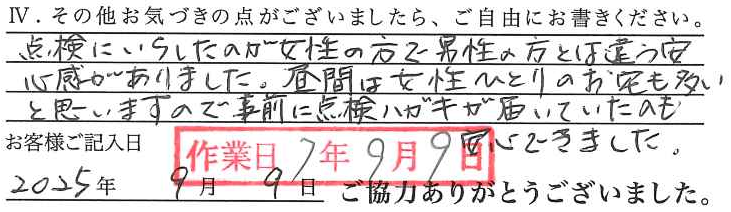 Ⅳ.その他お気づきの点がございましたら、ご自由にお書きください。
点検にいらしたのが女性の方で男性の方とは違う安
心感がありました。昼間は女性ひとりのお宅も多い
と思いますので事前に点検ハガキが届いていたのも
安心できました。
お客様ご記入日
作業日 7年9月9日
2025年 9月 9日 ご協力ありがとうございました。